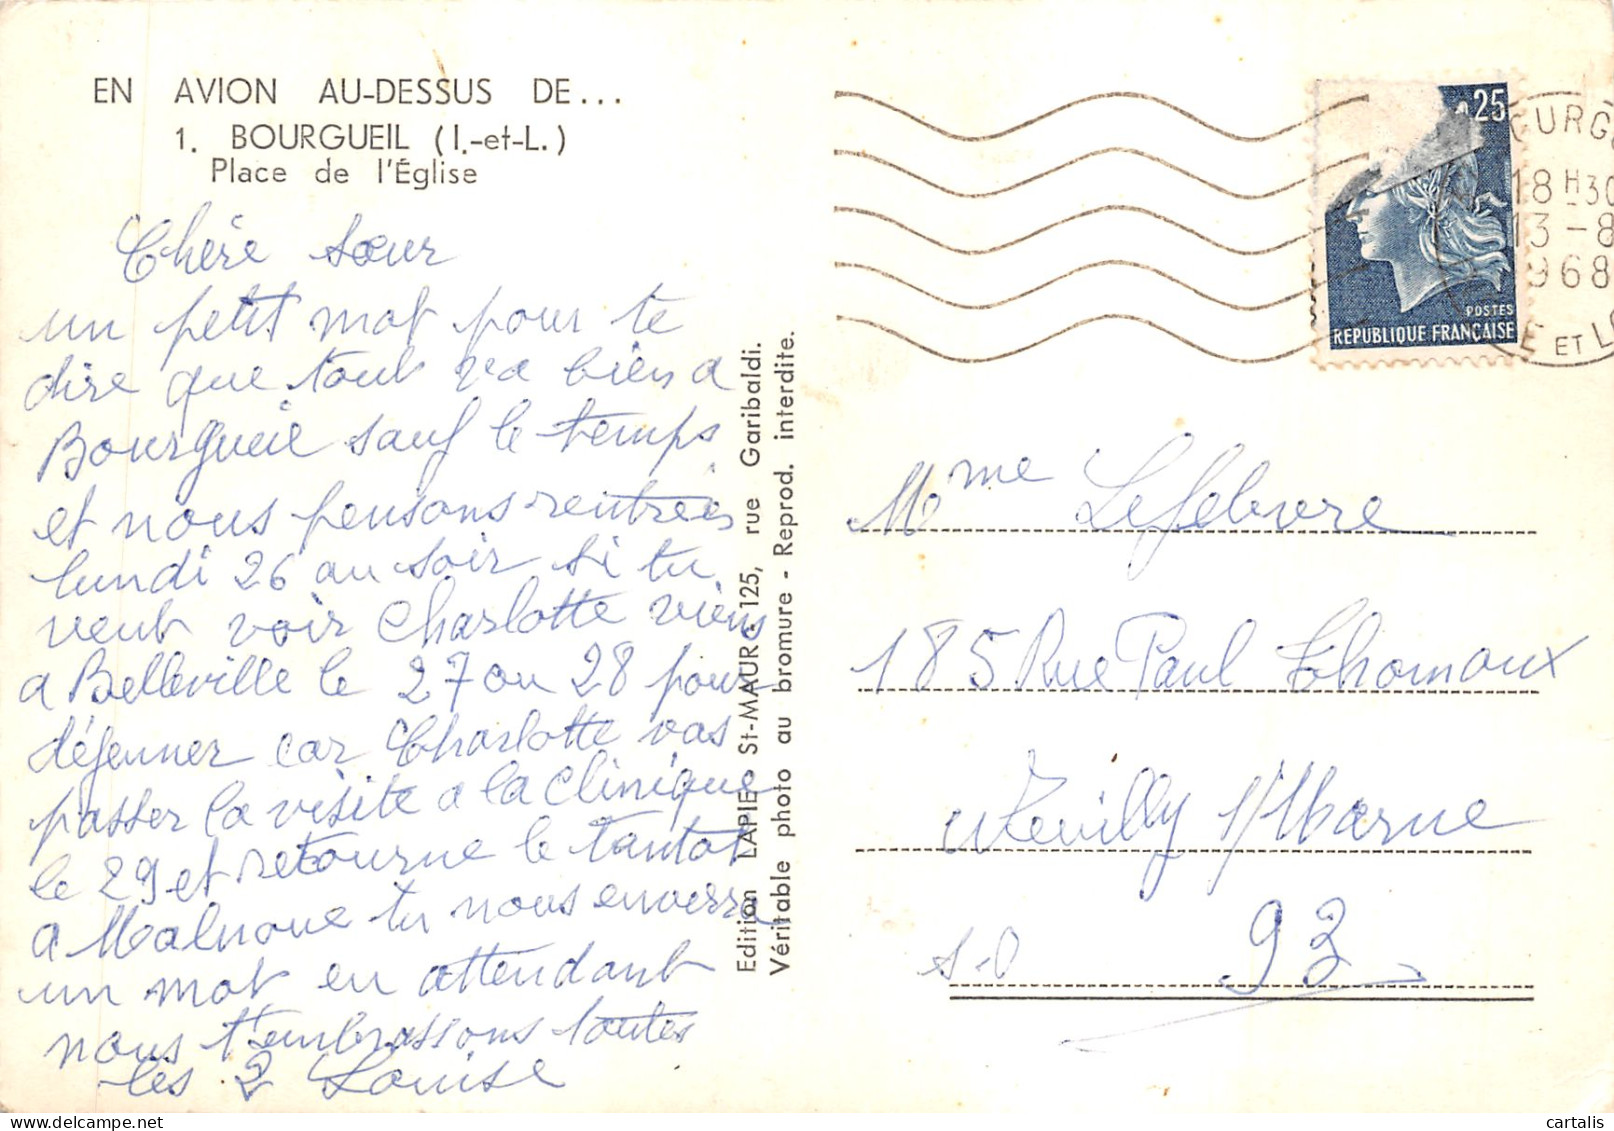 EN AVION AU-DESSUS DE...
1. BOURGUEIL (I.-et-L.)
Place de l'Église
Chère sœur
un petit mot pour te
dire que tout va bien a
Bourgueil sauf le temps
et nous pensons rentrer
lundi 26 au soir si tu
veut voir Charlotte viens
a Belleville le 27 ou 28 pour
déjeuner car Charlotte vas
passer la visite a la clinique
le 29 et retourne le tantot
a Malnoue tu nous enverra
un mot en attendant
nous t'embrassons toutes
les 2 Louise
Edition LAPIE St-MAUR - 125, rue Garibaldi.
Véritable photo au bromure - Reprod. interdite.
0,25
POSTES
REPUBLIQUE FRANÇAISE
OURG
18 H 30
13-8
1968
E ET LO
Mme Lefebvre
185 Rue Paul Thomoux
Neuilly s/Marne
S-O 93
cartalis